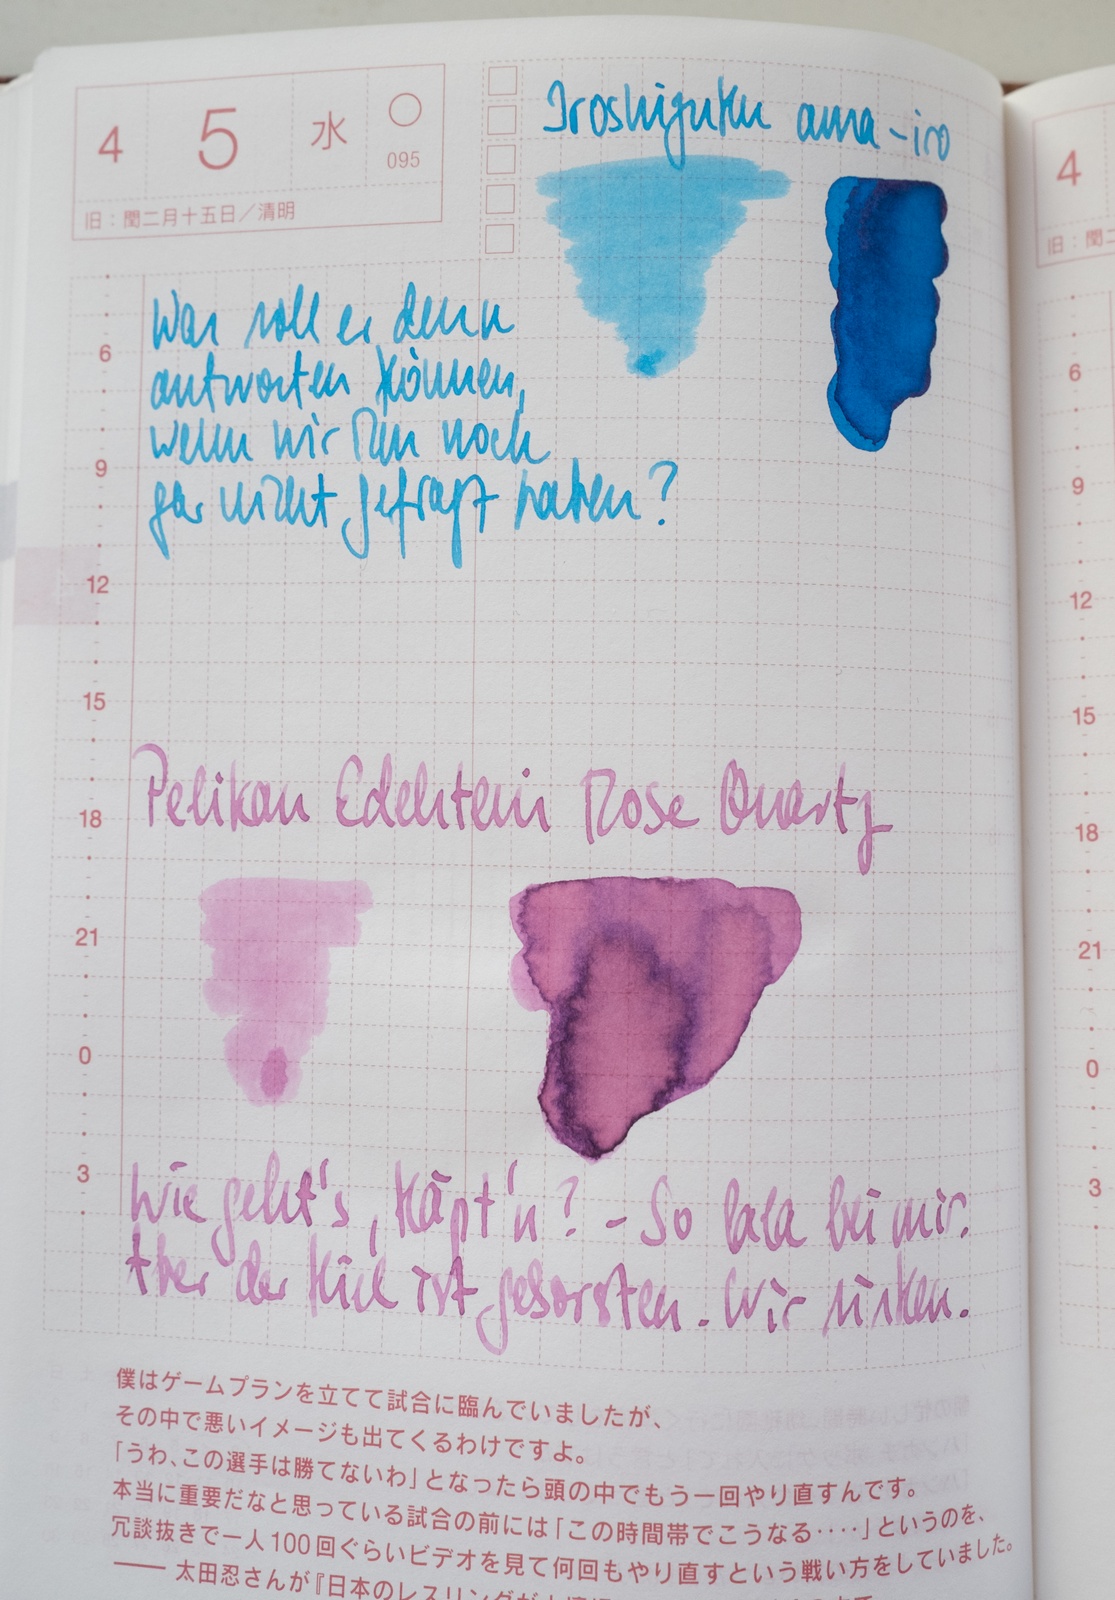 4 5 水 ○
095
旧：閏二月十五日／清明
Iroshizuku ama-iro
Was soll er denn
antworten können,
wenn wir ihn noch
gar nicht gefragt haben?
6
9
12
15
18
21
0
3
Pelikan Edelstein Rose Quartz
Wie geht's, Käpt'n? - So lala bei mir.
Aber der Kiel ist geborsten. Wir sinken.
僕はゲームプランを立てて試合に臨んでいましたが、
その中で悪いイメージも出てくるわけですよ。
「うわ、この選手は勝てないわ」となったら頭の中でもう一回やり直すんです。
本当に重要だなと思っている試合の前には「この時間帯でこうなる‥‥」というのを、
冗談抜きで一人100回ぐらいビデオを見て何回もやり直すという戦い方をしていました。
―― 太田忍さんが『日本のレスリングが
4
旧：閏二
6
9
12
15
18
21
0
3